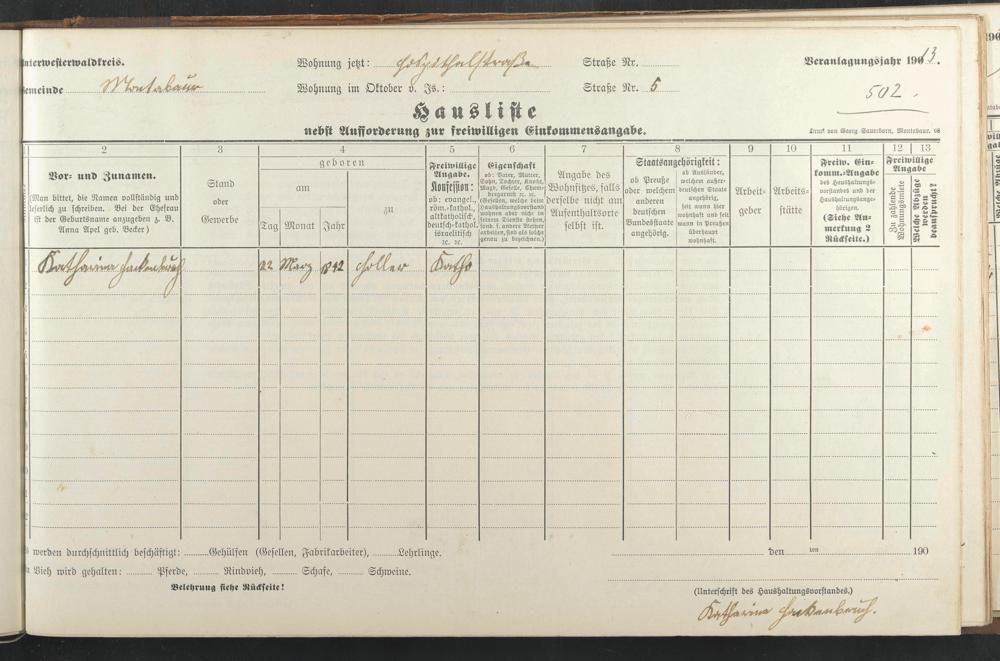 Unterwesterwaldkreis.
Wohnung jetzt: Hospithalstraße Straße Nr.
Veranlagungsjahr 1913.
Gemeinde Montabaur
Wohnung im Oktober v. Js.: Straße Nr. 5
502.
Hausliste
nebst Aufforderung zur freiwilligen Einkommensangabe.
Druck von Georg Sauerborn, Montabaur. 08
2 3 4 5 6 7 8 9 10 11 12 13
Vor- und Zunamen.
(Man bittet, die Namen vollständig und
leserlich zu schreiben. Bei der Ehefrau
ist der Geburtsname anzugeben z. B.
Anna Apel geb. Becker)
Stand
oder
Gewerbe
geboren
am
Tag Monat Jahr
zu
Freiwillige
Angabe.
Konfession:
ob: evangel.,
röm.-kathol.,
altkatholisch,
deutsch-kathol.
israelitisch
ec. ec.
Eigenschaft
ob: Vater, Mutter,
Sohn, Tochter, Knecht,
Magd, Geselle, Cham-
bregarnist ec. ec.
(Gesellen, welche beim
Haushaltungsvorstand
wohnen aber nicht in
seinem Dienste stehen,
sond. f. andere Meister
arbeiten, sind als solche
genau zu bezeichnen.)
Angabe des
Wohnsitzes, falls
derselbe nicht am
Aufenthaltsorte
selbst ist.
Staatsangehörigkeit:
ob Preuße
oder welchem
anderen
deutschen
Bundesstaate
angehörig.
ob Ausländer,
welchem außer-
deutschen Staate
angehörig,
seit wann hier
wohnhaft und seit
wann in Preußen
überhaupt
wohnhaft.
Arbeit-
geber
Arbeits-
stätte
Freiw. Ein-
komm.-Angabe
des Haushaltungs-
vorstandes und der
Haushaltungsange-
hörigen.
(Siehe An-
merkung 2
Rückseite.)
Freiwillige
Angabe
Zu zahlende
Wohnungsmiete
Welche Abzüge
werden
beansprucht?
Katharina Hackenbruch 22 März 1842 Holler Kath
werden durchschnittlich beschäftigt: Gehülfen (Gesellen, Fabrikarbeiter), Lehrlinge.
den ten 190
Vieh wird gehalten: Pferde, Rindvieh, Schafe, Schweine.
Belehrung siehe Rückseite!
(Unterschrift des Haushaltungsvorstandes.)
Katharina Hackenbruch.